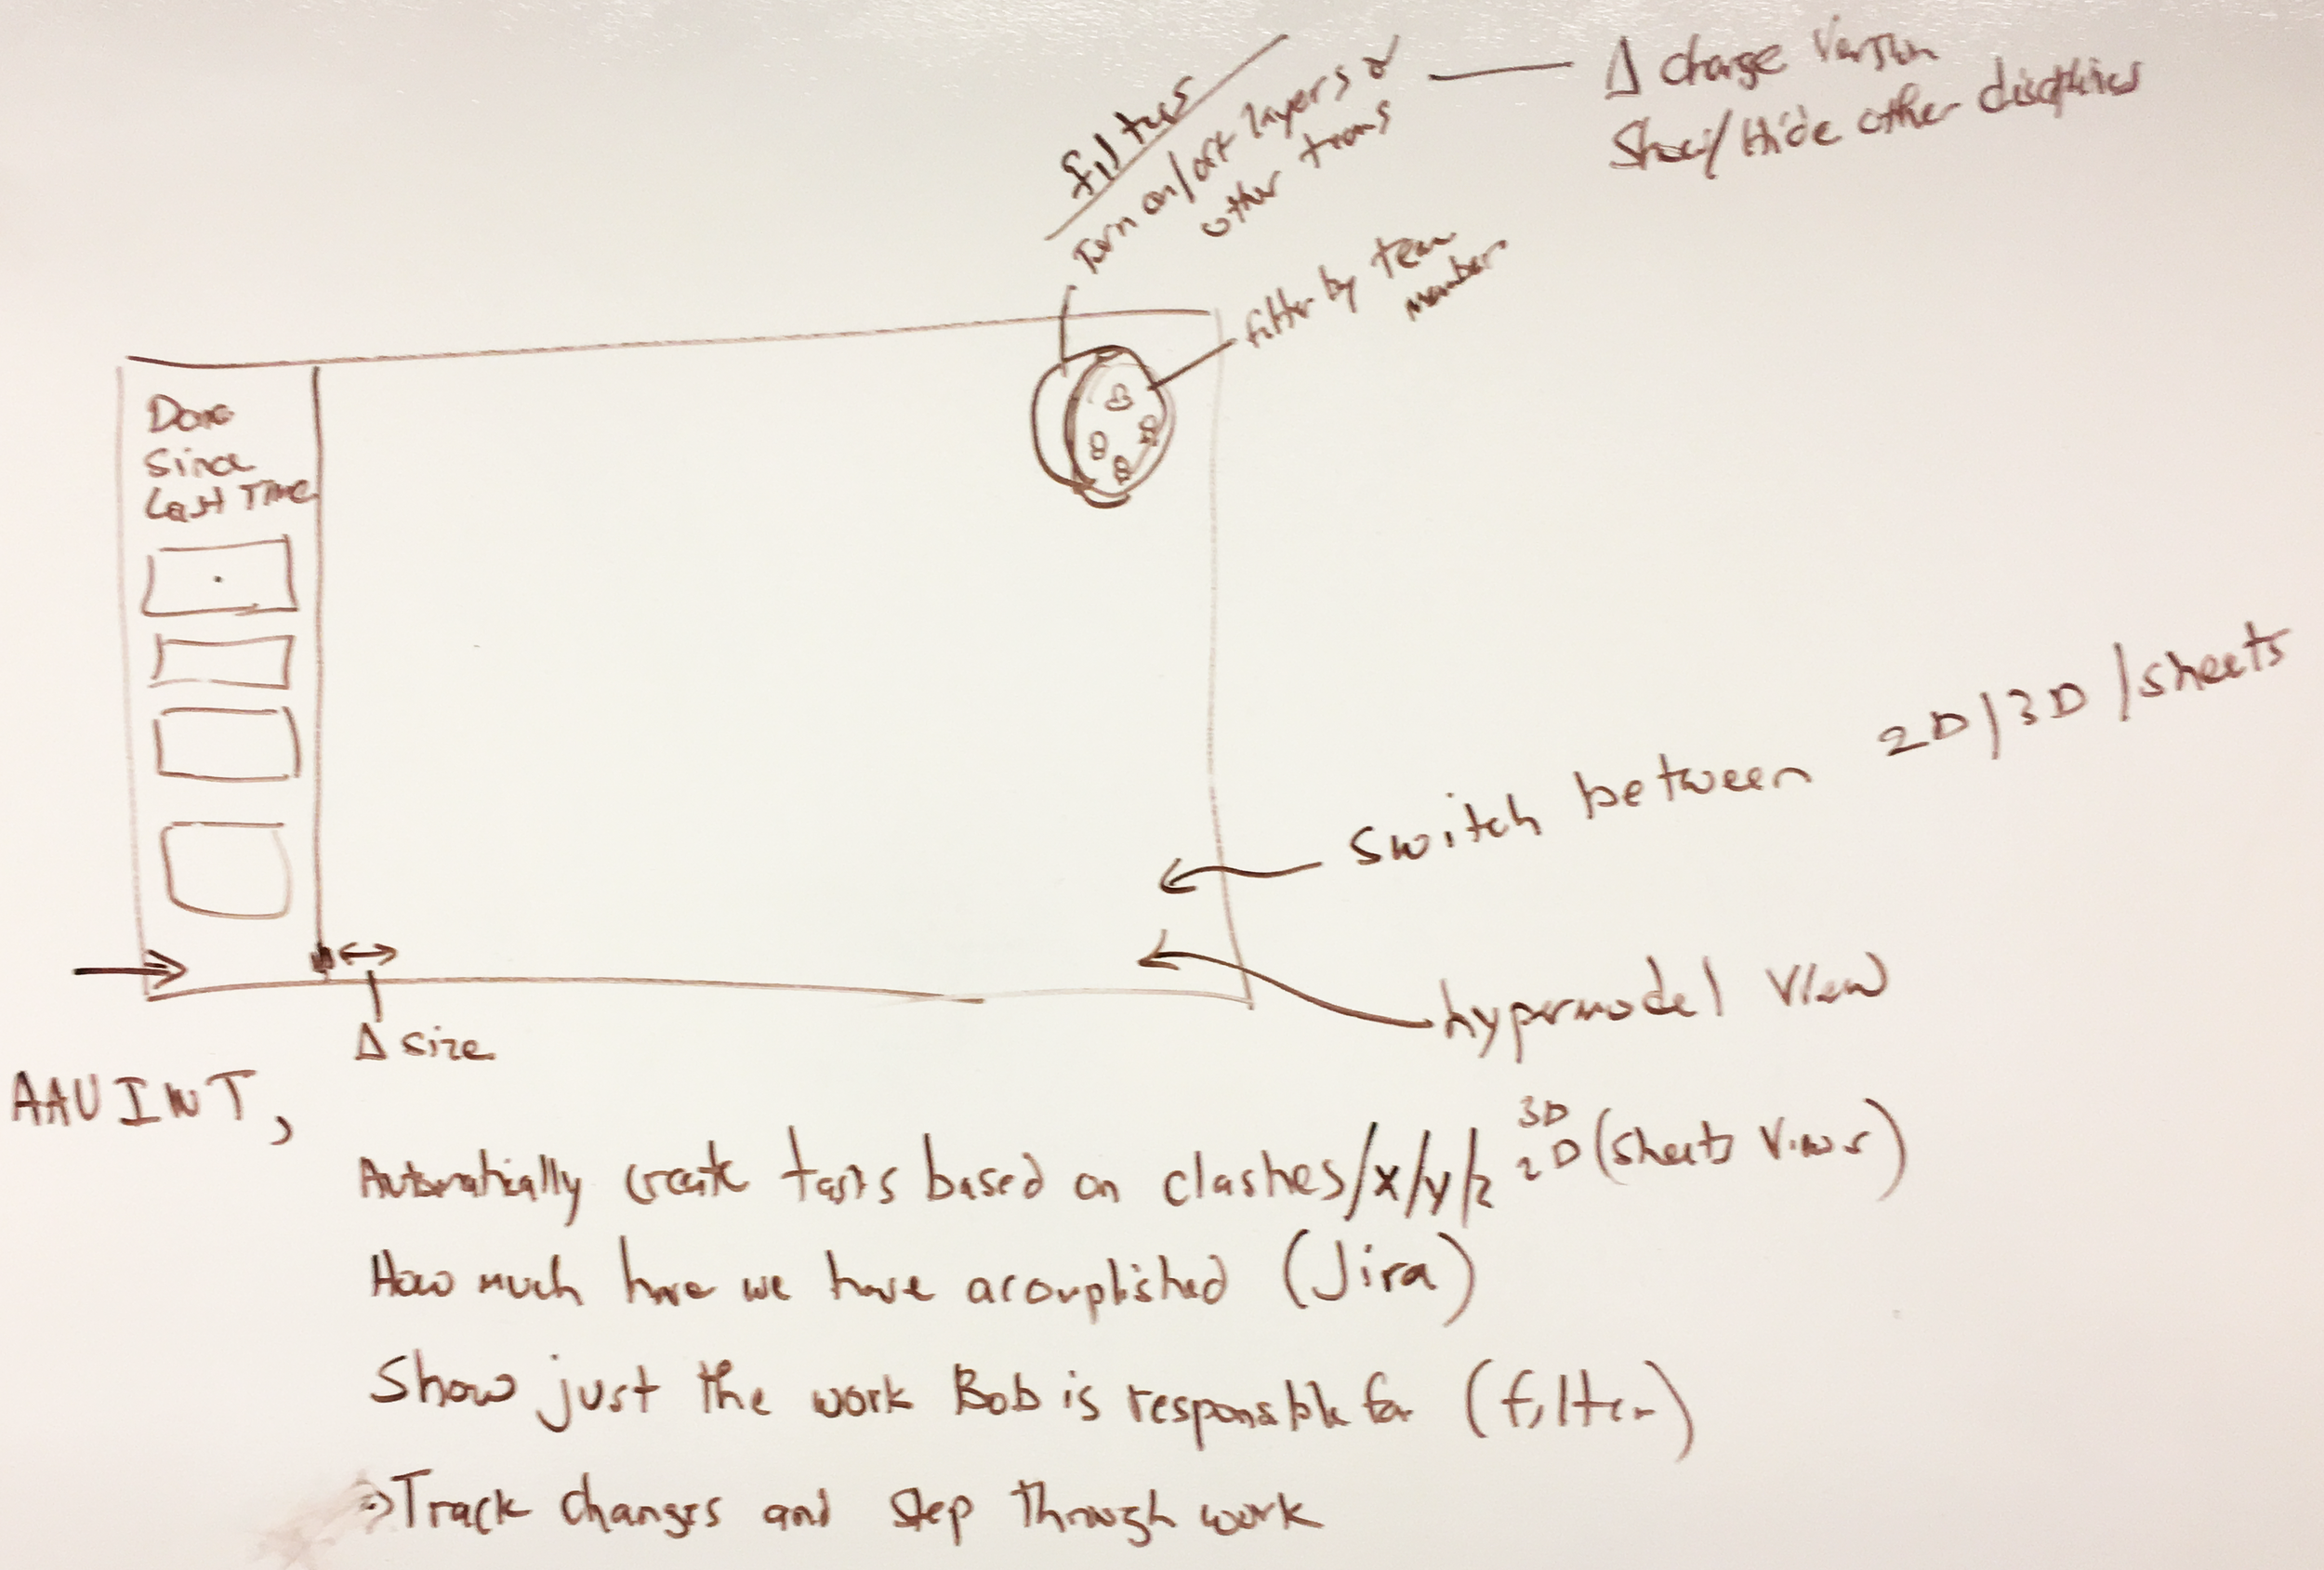 filters
Turn on/off layers &
other teams
Δ change Version
Show/Hide other disciplines
filter by team
member
Done
Since
Last Time
Switch between 2D/3D/sheets
hypermodel View
Δ size
AAUIWT,
Automatically create tasks based on clashes/x/y/z 3D 2D (sheets Views)
How much have we have acomplished (Jira)
Show just the work Bob is responsable for (filter)
→ Track changes and step through work